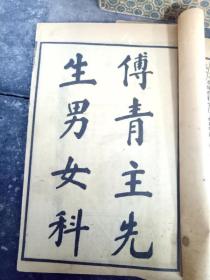 傅青主先
生男女科